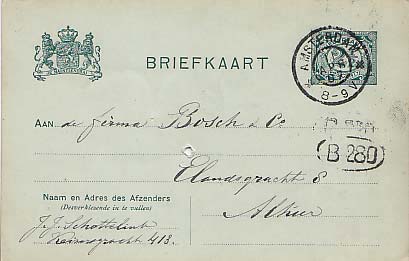 BRIEFKAART
AMSTERDAM
8-9V
AAN de firma Bosch & Co.
B 280
Elandsgracht 8
Alhier
Naam en Adres des Afzenders
(Desverkiezende in te vullen)
J. J. Schottelink
Keizersgracht 418.